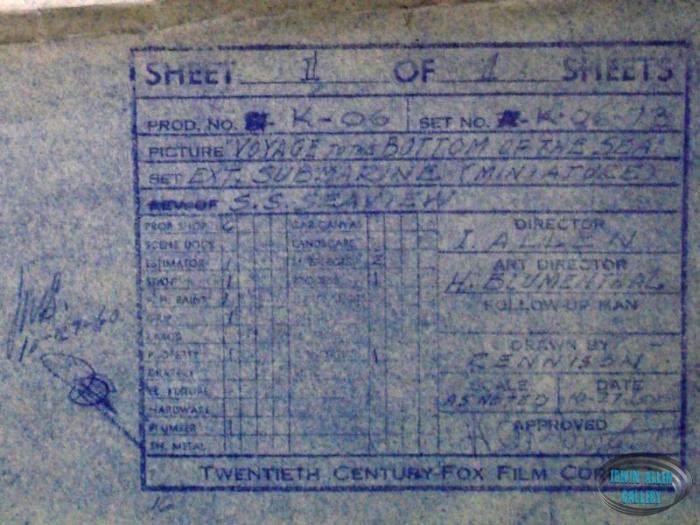 SHEET 1 OF 1 SHEETS
PROD. NO. K-06 SET NO. K-06-73
PICTURE VOYAGE TO THE BOTTOM OF THE SEA
SET EXT. SUBMARINE (MINIATURE)
REV. OF S.S. SEAVIEW
PROP SHOP 6 CAR CANVAS
SCENE DOCK LANDSCAPE
ESTIMATOR 1 2
STAFF 1 1
PAINT 1
GRIP 1
LABOR
PROPERTY 1 1
DRAPERY
EL. FIXTURE
HARDWARE
PLUMBER 1
SH. METAL
DIRECTOR
I. ALLEN
ART DIRECTOR
H. BLUMENTHAL
FOLLOW-UP MAN
DRAWN BY
CENNISON
SCALE DATE
AS NOTED 10-27-60
APPROVED
10-27-60
TWENTIETH CENTURY-FOX FILM
IRWIN ALLEN
GALLERY